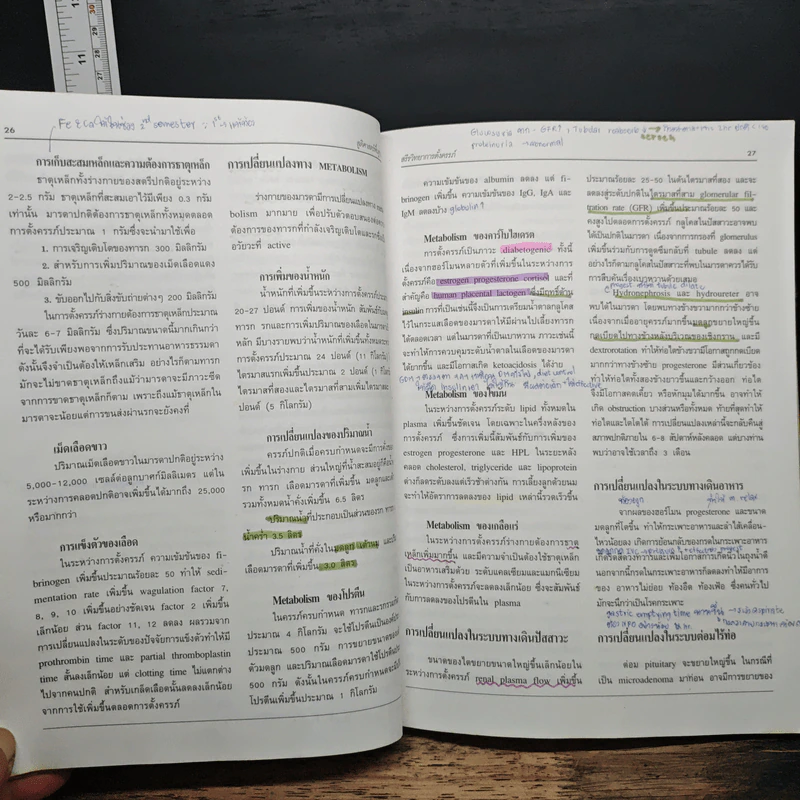 26
การเก็บสะสมเหล็กและความต้องการธาตุเหล็ก
ธาตุเหล็กทั้งร่างกายของสตรีปกติอยู่ระหว่าง
2-2.5 กรัม ธาตุเหล็กที่สะสมเอาไว้มีเพียง 0.3 กรัม
เท่านั้น มารดาปกติต้องการธาตุเหล็กทั้งหมดตลอด
การตั้งครรภ์ประมาณ 1 กรัมซึ่งจะนำมาใช้เพื่อ
1. การเจริญเติบโตของทารก 300 มิลลิกรัม
2. สำหรับการเพิ่มปริมาณของเม็ดเลือดแดง
500 มิลลิกรัม
3. ขับออกไปกับสิ่งขับถ่ายต่างๆ 200 มิลลิกรัม
ในการตั้งครรภ์ร่างกายต้องการธาตุเหล็กประมาณ
วันละ 6-7 มิลลิกรัม ซึ่งปริมาณขนาดนี้มากเกินกว่า
ที่จะได้รับเพียงพอจากการรับประทานอาหารธรรมดา
ดังนั้นจึงจำเป็นต้องให้เหล็กเสริม อย่างไรก็ตามทารก
มักจะไม่ขาดธาตุเหล็กถึงแม้ว่ามารดาจะมีภาวะซีด
จากการขาดธาตุเหล็กก็ตาม เพราะถึงแม้ธาตุเหล็กใน
มารดาจะน้อยแต่การขนส่งผ่านรกจะยังคงที่
เม็ดเลือดขาว
ปริมาณเม็ดเลือดขาวในมารดาปกติอยู่ระหว่าง
5,000-12,000 เซลล์ต่อลูกบาศก์มิลลิเมตร แต่ใน
ระหว่างการคลอดปกติอาจเพิ่มขึ้นได้มากถึง 25,000
หรือมากกว่า
การแข็งตัวของเลือด
ในระหว่างการตั้งครรภ์ ความเข้มข้นของ fi-
brinogen เพิ่มขึ้นประมาณร้อยละ 50 ทำให้ sedi-
mentation rate เพิ่มขึ้น wagulation factor 7,
8, 9, 10 เพิ่มขึ้นอย่างชัดเจน factor 2 เพิ่มขึ้น
เล็กน้อย ส่วน factor 11, 12 ลดลง ผลรวมจาก
การเปลี่ยนแปลงในระดับของปัจจัยการแข็งตัวทำให้มี
prothrombin time และ partial thromboplastin
time สั้นลงเล็กน้อย แต่ clotting time ไม่แตกต่าง
ไปจากคนปกติ สำหรับเกล็ดเลือดนั้นลดลงเล็กน้อย
จากการใช้เพิ่มขึ้นตลอดการตั้งครรภ์
การเปลี่ยนแปลงทาง METABOLISM
ร่างกายของมารดามีการเปลี่ยนแปลงทาง
bolism มากมาย เพื่อปรับตัวตอบสนอง
ต้องการของทารกที่กำลังเจริญเติบโตและรกซึ่งเป็น
อวัยวะที่ active
การเพิ่มของน้ำหนัก
น้ำหนักที่เพิ่มขึ้นระหว่างการตั้งครรภ์
20-27 ปอนด์ การเพิ่มของน้ำหนัก สัมพันธ์กับ
ทารก รกและการเพิ่มปริมาณของเลือดในมารดา
หลัก มีบางรายพบว่าน้ำหนักที่เพิ่มขึ้นทั้งหมด
การตั้งครรภ์ประมาณ 24 ปอนด์ (11 กิโลกรัม)
ไตรมาสแรกเพิ่มขึ้นประมาณ 2 ปอนด์ (1
ไตรมาสที่สองและไตรมาสที่สามเพิ่มไตรมาสละ
ปอนด์ (5 กิโลกรัม)
การเปลี่ยนแปลงของปริมาณน้ำ
ครรภ์ปกติเมื่อครบกำหนดจะมีการ
เพิ่มขึ้นในร่างกาย ส่วนใหญ่ที่น้ำสะสมอยู่ก็คือ
รก ทารก เลือดมารดาที่เพิ่มขึ้น มดลูกและ
รวมทั้งหมดน้ำคั่งเพิ่มขึ้น 6.5 ลิตร
ปริมาณน้ำที่ประกอบเป็นส่วนของรก ทารก
น้ำคร่ำ 3.5 ลิตร
ปริมาณน้ำที่คั่งในมดลูก เต้านม และ
เลือดมารดาที่เพิ่มขึ้น 3.0 ลิตร
Metabolism ของโปรตีน
ในครรภ์ครบกำหนด ทารกและรกรวมกัน
ประมาณ 4 กิโลกรัม จะใช้โปรตีนเป็นองค์
ประมาณ 500 กรัม การขยายขนาดของ
ตัวมดลูก และปริมาณเลือดมารดาใช้โปรตีน
500 กรัม ดังนั้นในครรภ์ครบกำหนดจะมี
โปรตีนเพิ่มขึ้นประมาณ 1 กิโลกรัม
สรีรวิทยาการตั้งครรภ์
27
ความเข้มข้นของ albumin ลดลง แต่ fi-
brinogen เพิ่มขึ้น ความเข้มข้นของ IgG, IgA และ
IgM ลดลงบ้าง globulin↑
Metabolism ของคาร์โบไฮเดรต
การตั้งครรภ์เป็นภาวะ diabetogenic ทั้งนี้
เนื่องจากฮอร์โมนหลายตัวที่เพิ่มขึ้นในระหว่างการ
ตั้งครรภ์คือ estrogen progesterone cortisol และที่
สำคัญคือ human placental lactogen ซึ่งมีฤทธิ์ต้าน
insulin การที่เป็นเช่นนี้จึงเป็นการเตรียมน้ำตาลกลูโคส
ไว้ในกระแสเลือดของมารดาให้มีผ่านไปเลี้ยงทารก
ได้ตลอดเวลา แต่ในมารดาที่เป็นเบาหวาน ภาวะเช่นนี้
จะทำให้การควบคุมระดับน้ำตาลในเลือดของมารดา
ได้ยากขึ้น และมีโอกาสเกิด ketoacidosis ได้ง่าย
Metabolism ของไขมัน
ในระหว่างการตั้งครรภ์ระดับ lipid ทั้งหมดใน
plasma เพิ่มขึ้นชัดเจน โดยเฉพาะในครึ่งหลังของ
การตั้งครรภ์ ซึ่งการเพิ่มนี้สัมพันธ์กับการเพิ่มของ
estrogen progesterone และ HPL ในระยะหลัง
คลอด cholesterol, triglyceride และ lipoprotein
ต่างก็ลดระดับลงแต่เร็วช้าต่างกัน การเลี้ยงลูกด้วยนม
จะทำให้อัตราการลดลงของ lipid เหล่านี้รวดเร็วขึ้น
Metabolism ของเกลือแร่
ในระหว่างการตั้งครรภ์ร่างกายต้องการธาตุ
เหล็กเพิ่มมากขึ้น และมีความจำเป็นต้องใช้ธาตุเหล็ก
เป็นอาหารเสริมด้วย ระดับแคลเซียมและแมกนีเซียม
ในระหว่างการตั้งครรภ์จะลดลงเล็กน้อย ซึ่งสัมพันธ์
กับการลดลงของโปรตีนใน plasma
การเปลี่ยนแปลงในระบบทางเดินปัสสาวะ
ขนาดของไตขยายขนาดใหญ่ขึ้นเล็กน้อยใน
ระหว่างการตั้งครรภ์ renal plasma flow เพิ่มขึ้น
ประมาณร้อยละ 25-50 ในต้นไตรมาสที่สอง และจะ
ลดลงสู่ระดับปกติในไตรมาสที่สาม glomerular fil-
tration rate (GFR) เพิ่มขึ้นประมาณร้อยละ 50 และ
คงสูงไปตลอดการตั้งครรภ์ กลูโคสในปัสสาวะอาจพบ
ได้เป็นปกติในมารดา เนื่องจากการกรองที่ glomerulus
เพิ่มขึ้นร่วมกับการดูดซึมกลับที่ tubule ลดลง แต่
อย่างไรก็ตามกลูโคสในปัสสาวะที่พบในมารดาควรได้รับ
การสืบค้นเรื่องเบาหวานด้วยเสมอ
Hydronephrosis และ hydroureter อาจ
พบได้ในมารดา โดยพบทางข้างขวามากกว่าข้างซ้าย
เนื่องจากเมื่ออายุครรภ์มากขึ้นมดลูกขยายใหญ่ขึ้น
กดเบียดไปทางข้างหลังบริเวณของเชิงกราน และมี
dextrorotation ทำให้ท่อไตข้างขวามีโอกาสถูกกดเบียด
มากกว่าทางข้างซ้าย progesterone มีส่วนเกี่ยวข้อง
ทำให้ท่อไตทั้งสองข้างยาวขึ้นและกว้างออก ท่อไต
จึงมีโอกาสคดเคี้ยว หรือหักมุมได้มากขึ้น อาจทำให้
เกิด obstruction บางส่วนหรือทั้งหมด ท้ายที่สุดทำให้
ท่อไตและไตโตได้ การเปลี่ยนแปลงเหล่านี้จะกลับคืนสู่
สภาพปกติภายใน 6-8 สัปดาห์หลังคลอด แต่บางท่าน
พบว่าอาจใช้เวลาถึง 3 เดือน
การเปลี่ยนแปลงในระบบทางเดินอาหาร
จากผลของฮอร์โมน progesterone และขนาด
มดลูกที่โตขึ้น ทำให้กระเพาะอาหารและลำไส้เคลื่อน-
ไหวน้อยลง เกิดการย้อนกลับของกรดในกระเพาะอาหาร
นอกจากนี้กรดในกระเพาะอาหารก็ลดลงทำให้มีอาการ
ของ อาหารไม่ย่อย ท้องอืด ท้องเฟ้อ ซึ่งคนทั่วไป
มักจะนึกว่าเป็นโรคกระเพาะ
gastric emptying time
การเปลี่ยนแปลงในระบบต่อมไร้ท่อ
ต่อม pituitary จะขยายใหญ่ขึ้น ในกรณีที่
เป็น microadenoma มาก่อน อาจมีการขยายของ